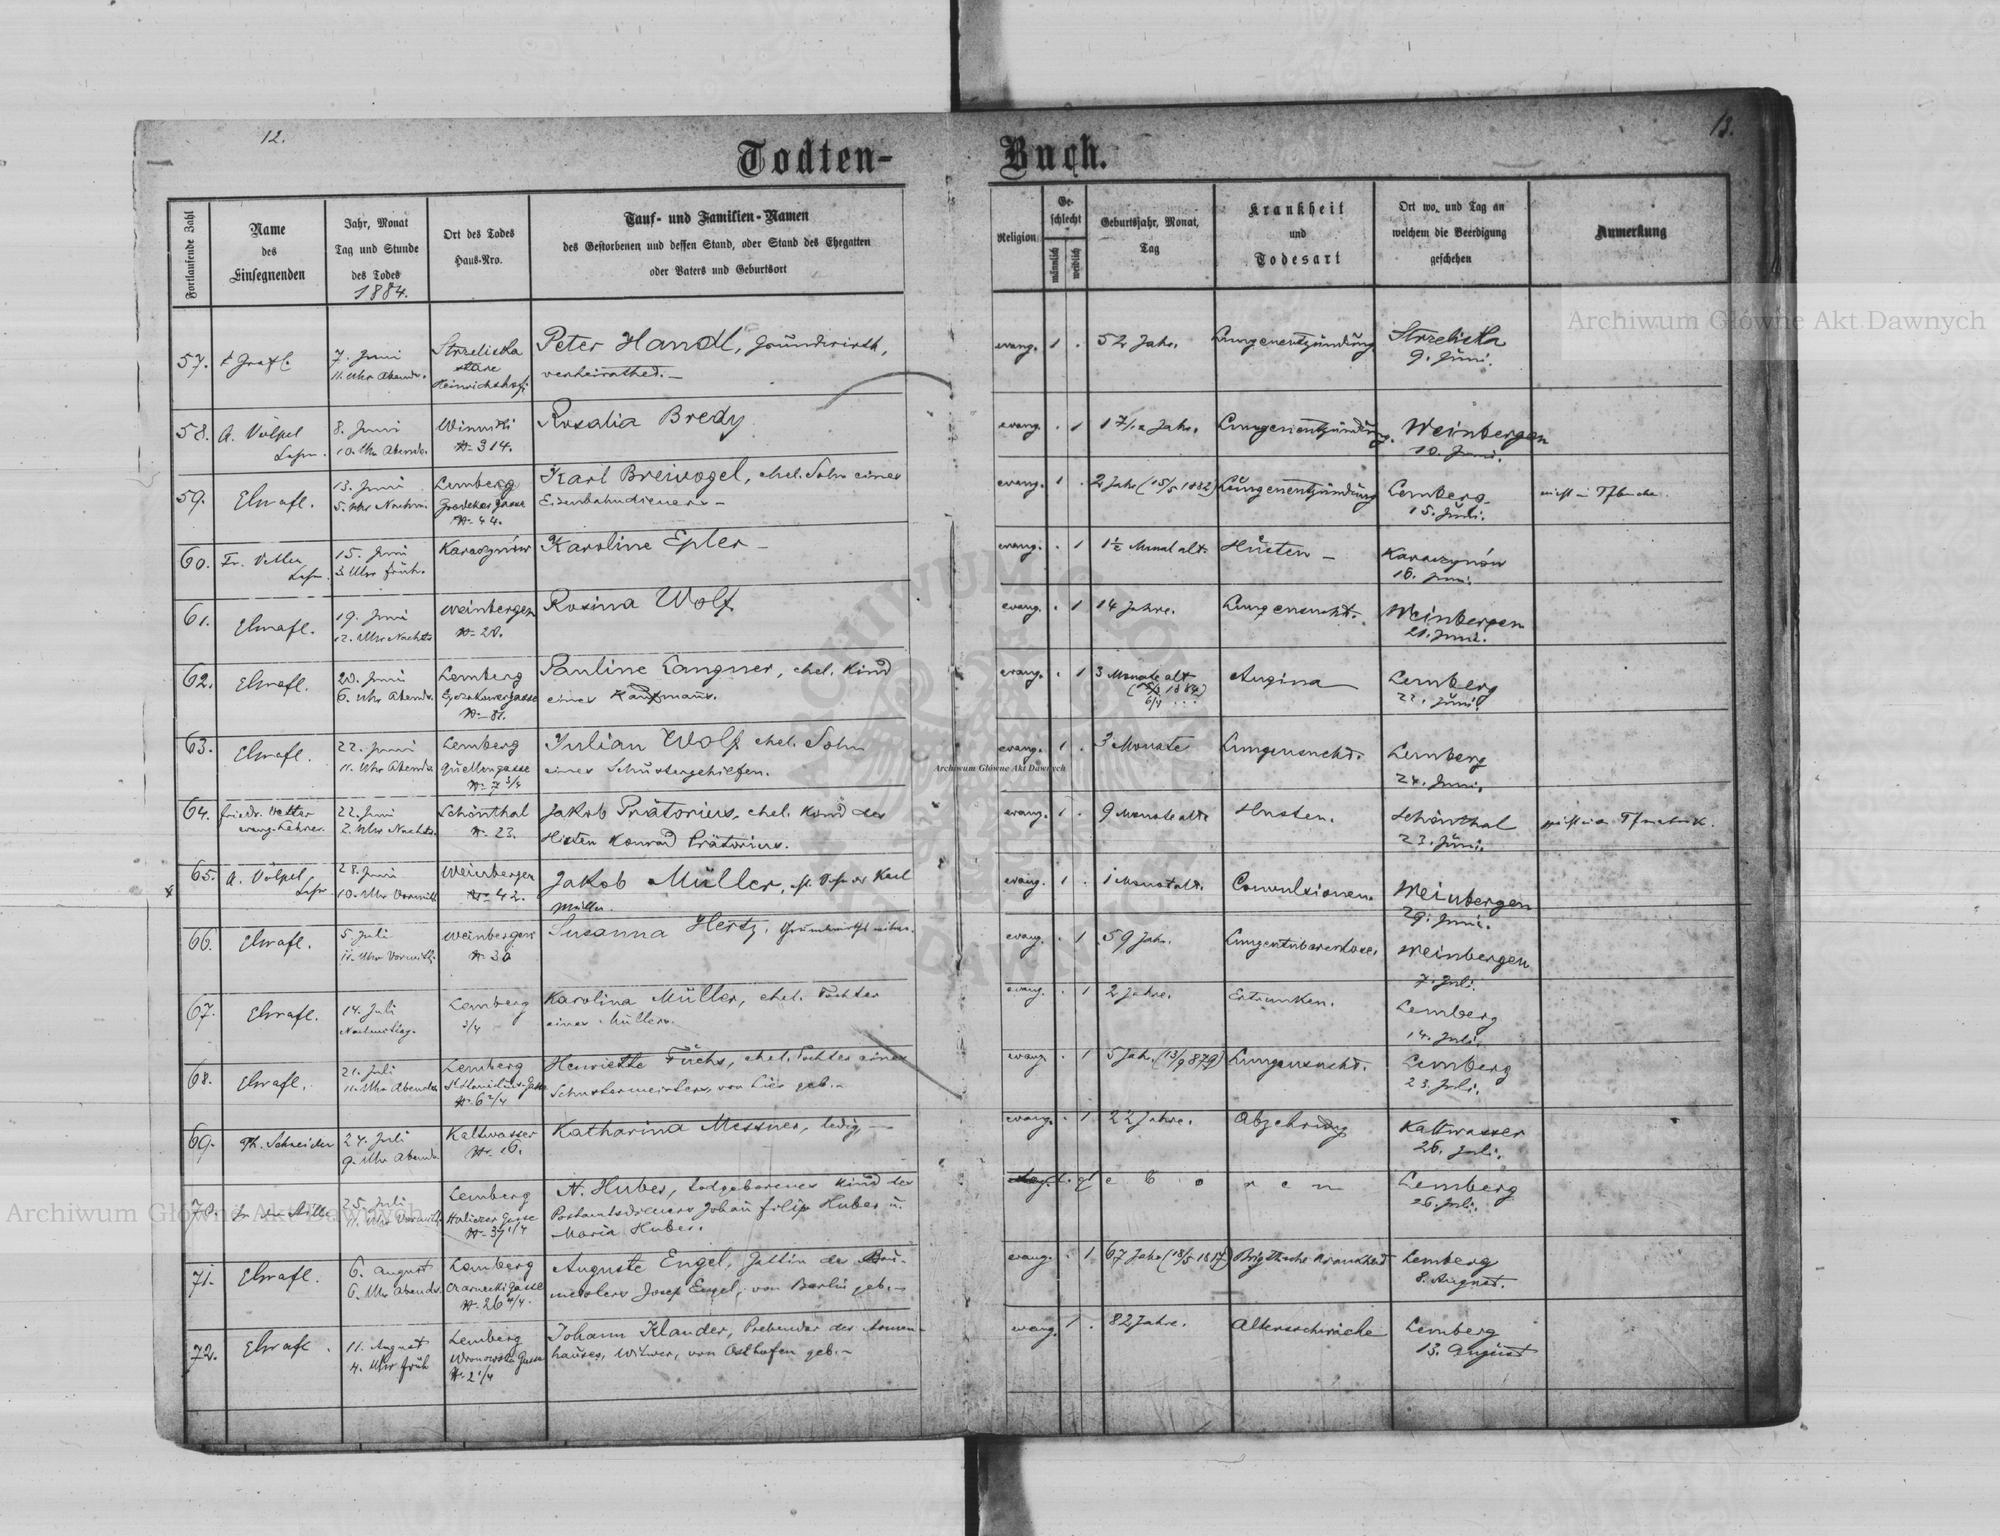 12.
13.
Todten-Buch.
Fortlaufende Zahl
Name
des
Einsegnenden
Jahr, Monat
Tag und Stunde
des Todes
1884.
Ort des Todes
Haus-Nro.
Tauf- und Familien-Namen
des Gestorbenen und dessen Stand, oder Stand des Ehegatten
oder Vaters und Geburtsort
Religion
Ge-
schlecht
männlich
weiblich
Geburtsjahr, Monat,
Tag
Krankheit
und
Todesart
Ort wo, und Tag an
welchem die Beerdigung
geschehen
Anmerkung
57.
7. Juni
11. Uhr Abends.
Strzeliska
stare
Heinrichshof
Peter Handl, Grundwirth,
verheirathed.
evang. 1 .
52 Jahr.
Lungenentzündung
Strzeliska
9. Juni.
58. A. Völpel
8. Juni
10. Uhr Abends.
Winniki
N- 314.
Rosalia Bredy
evang. . 1
17/12 Jahr.
Lungenentzündung.
Weinbergen
10. Juni.
59.
13. Juni
5. Uhr Nachm.
Lemberg
Grodeker Gasse
N- 44.
Karl Breivogel, ehel. Sohn eines
Eisenbahndieners
evang. 1 .
2 Jahr (15/5 1882)
Lungenentzündung
Lemberg
15. Juli.
60. Fr. Vetter
15. Juni
3 Uhr früh.
Karaczynów
Karoline Epler
evang. . 1
1½ Monat alt.
Hüsten
Karaczynów
16. Juni.
61.
19. Juni
12. Uhr Nachts
Weinbergen
N- 20.
Rosina Wolf
evang. . 1
14 Jahre.
Lungensucht.
Weinbergen
21. Juni.
62.
20. Juni
6. Uhr Abends.
Lemberg
N- 81.
Pauline Langner, ehel. Kind
eines Kaufmanns.
evang. . 1
3 Monate alt
Angina
Lemberg
22. Juni.
63.
22. Juni
11. Uhr Abends
Lemberg
Quellengasse
N- 7 3/4
Julian Wolf ehel. Sohn
eines Schustergehilfen.
evang. 1 .
3 Monate
Lungensucht.
Lemberg
24. Juni.
64. Friedr. Vetter
evang. Lehrer
22. Juni
2. Uhr Nachts.
Schönthal
N- 23.
Jakob Prätorius, ehel. Kind des
Hirten Konrad Prätorius.
evang. 1 .
9 Monate alt
Husten.
Schönthal
23. Juni.
65. A. Völpel
28. Juni
10. Uhr Vormitt.
Weinbergen
N- 42.
Jakob Müller, Karl
Müller.
evang. 1 .
1 Monat alt.
Convulsionen.
Weinbergen
29. Juni.
66.
5. Juli
11. Uhr Vormitt.
Weinbergen
N- 36
Susanna Hertz,
evang. . 1
59 Jahr.
Lungentuberculose.
Weinbergen
7. Juli.
67.
14. Juli
Nachmittag.
Lemberg
3/4
Karolina Müller, ehel. Tochter
eines Müllers.
evang. . 1
2 Jahre.
Ertrunken.
Lemberg
14. Juli.
68.
21. Juli
11. Uhr Abends.
Lemberg
N- 6 2/4
Henriette Fuchs, ehel. Tochter eines
Schustermeisters, von hier geb.
evang. . 1
5 Jahr.
Lungensucht.
Lemberg
23. Juli.
69. Th. Schneider
24. Juli
9. Uhr Abends.
Kaltwasser
N- 16.
Katharina Messner, ledig,
evang. . 1
22 Jahre.
Abzehrung
Kaltwasser
26. Juli.
70.
25. Juli
11. Uhr Vormitt.
Lemberg
Haliczer Gasse
N- 39 1/4
N. Huber, todgeborenes Kind des
Postamtsdieners Johann Filip Huber u.
Maria Huber.
t. g e b o r e n
Lemberg
26. Juli.
71.
6. August
6. Uhr Abends.
Lemberg
Czarnecki Gasse
N- 26 4/4.
Auguste Engel, Gattin des Bau-
meisters Josef Engel, von Berlin geb.
evang. . 1
67 Jahr (18/5 1817)
Brigthsche Krankheit
Lemberg
8. August.
72.
11. August
4. Uhr früh
Lemberg
Wronowska Gasse
N- 2 1/4
Johann Klander, Prebendar des Armen-
hauses, Witwer, von Osthofen geb.
evang. 1 .
82 Jahre.
Altersschwäche
Lemberg
13. August
Archiwum Główne Akt Dawnych
Archiwum Główne Akt Dawnych
Archiwum Główne Akt Dawnych